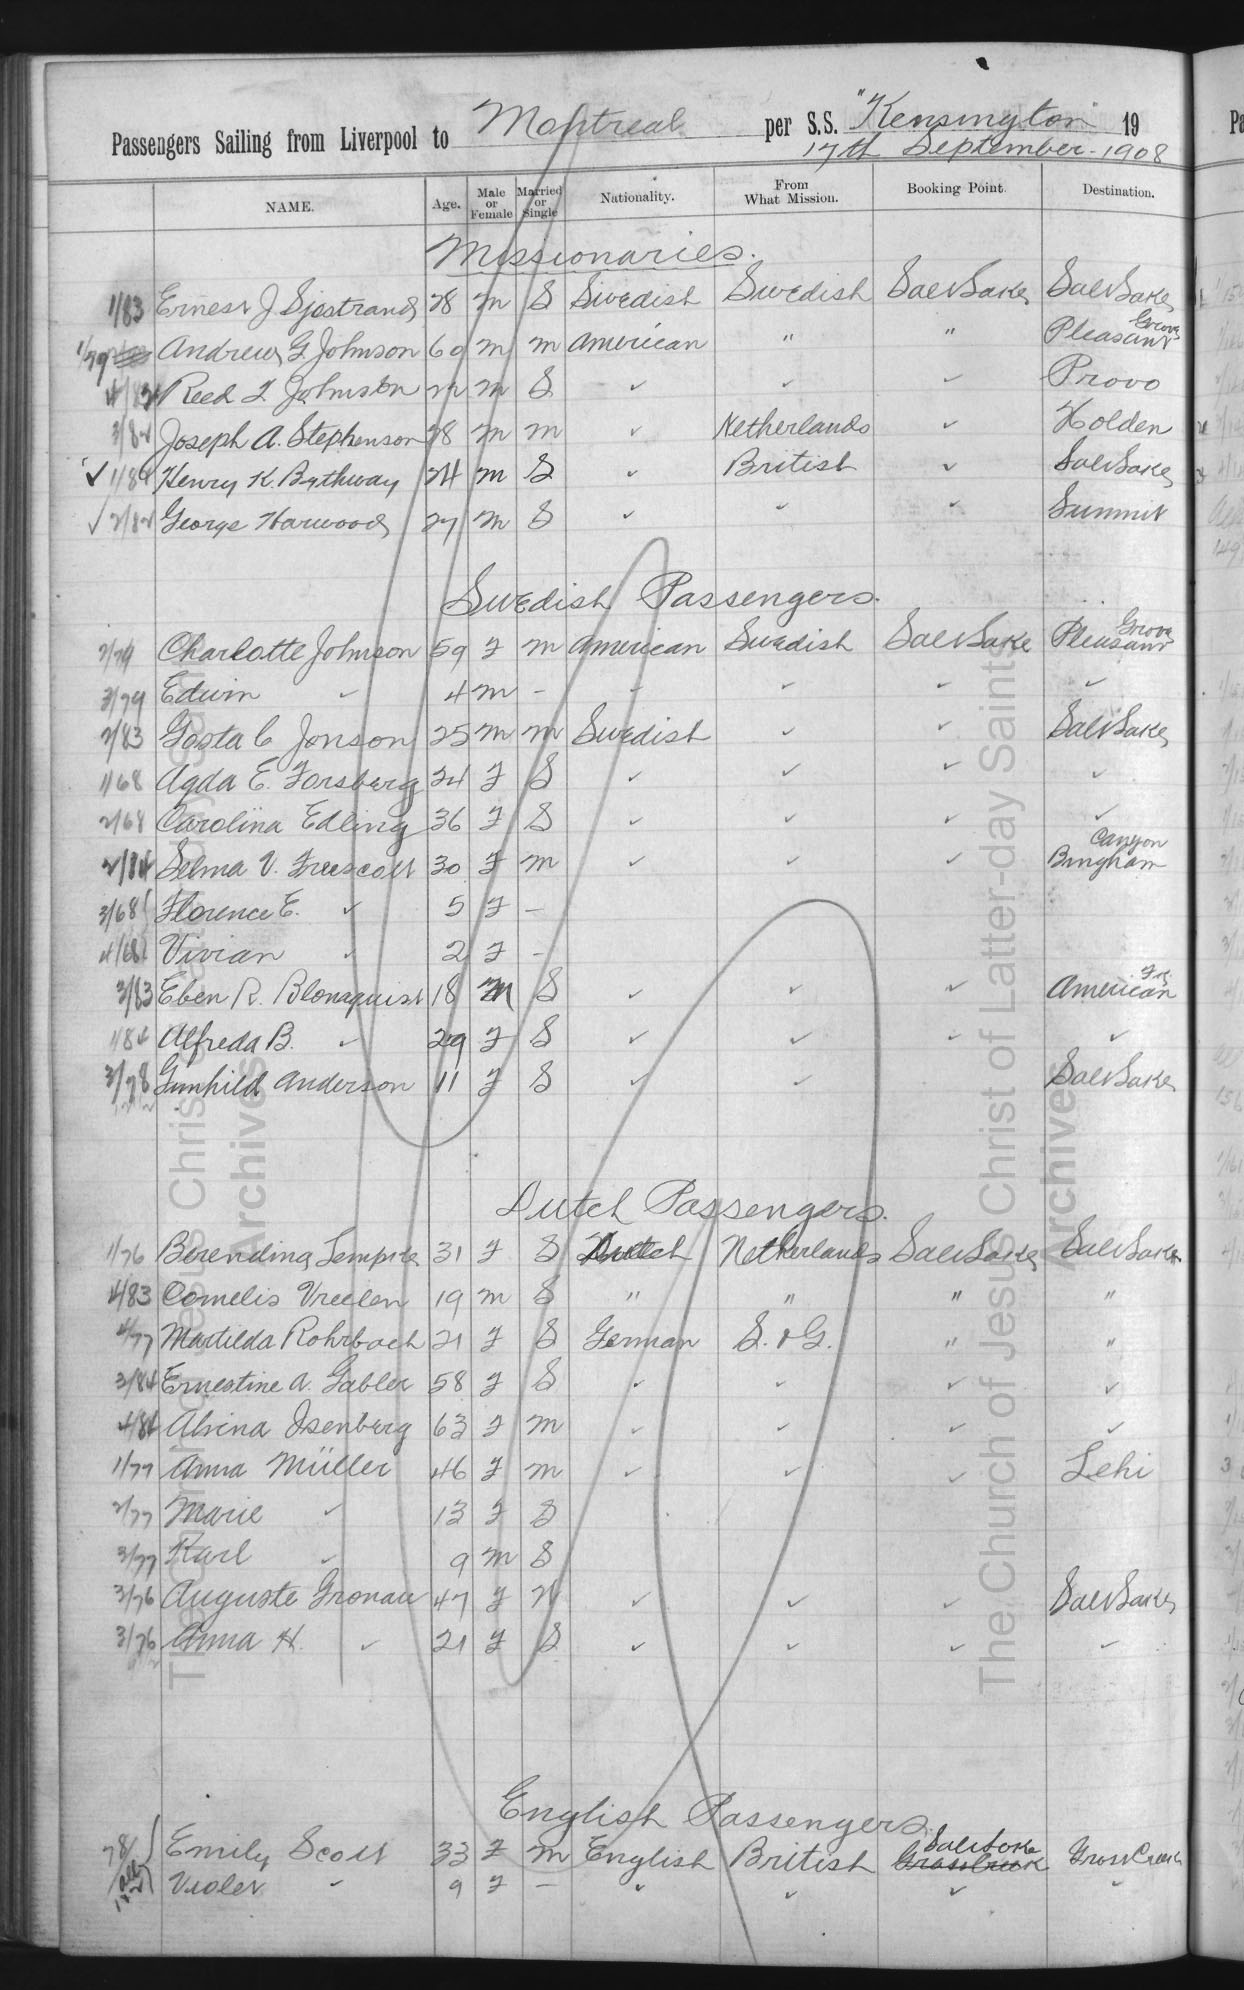 Passengers Sailing from Liverpool to Montreal per S.S. "Kensington" 19
17th September 1908
NAME. Age. Male or Female Married or Single Nationality. From What Mission. Booking Point. Destination.
Missionaries.
1/83 Ernest J Sjostrand 28 m S Swedish Swedish Salt Lake Salt Lake
1/79 Andrew G. Johnson 60 m m American " " Pleasant Grove
4/84 Reed J. Johnson m S ✓ ✓ ✓ Provo
3/84 Joseph A. Stephenson 28 m m ✓ Netherlands ✓ Holden
✓ 1/84 Henry K. Bythway 24 m S ✓ British ✓ Salt Lake
✓ 2/84 George Harwood 27 m S ✓ ✓ ✓ Summit
Swedish Passengers.
2/79 Charlotte Johnson 59 F m American Swedish Salt Lake Pleasant Grove
3/79 Edwin ✓ 4 m - ✓ ✓ ✓ ✓
2/83 Gosta C Jonson 25 m m Swedish ✓ ✓ Salt Lake
1/68 Agda E. Forsberg 24 F S ✓ ✓ ✓ ✓
2/68 Carolina Edling 36 F S ✓ ✓ ✓ ✓
2/84 Selma V. 30 F m ✓ ✓ ✓ Bingham Canyon
3/68 Florence E. ✓ 5 F -
4/68 Vivian ✓ 2 F -
3/83 Eben R. Blomquist 18 m S ✓ ✓ ✓ American Frk.
1/84 Alfreda B. ✓ 29 F S ✓ ✓ ✓ ✓
3/78 Gunhild Anderson 11 F S ✓ ✓ Salt Lake
Dutch Passengers.
1/76 Berendina Lempke 31 F S Dutch Netherlands Salt Lake Salt Lake
4/83 Cornelis Vreelen 19 m S " " " "
4/77 Martilda Rohrbach 21 F S German S. & G. " "
3/84 Ernestine A. Gabler 58 F S ✓ ✓ ✓ ✓
4/84 Alvina Isenberg 63 F m ✓ ✓ ✓ ✓
1/77 Anna Müller 46 F m ✓ ✓ ✓ Lehi
2/77 Marie ✓ 13 F S
3/77 Karl ✓ 9 m S
3/76 Auguste Gronau 47 F ✓ ✓ ✓ Salt Lake
3/76 Anna H. ✓ 21 F S ✓ ✓ ✓ ✓
English Passengers.
78 Emily Scott 33 F m English British Salt Lake Grass Creek Grass Creek
Violet ✓ 9 F - ✓ ✓ ✓ ✓
The Church of Jesus Christ of Latter-day Saints
Archives
The Church of Jesus Christ of Latter-day Saints
Archives